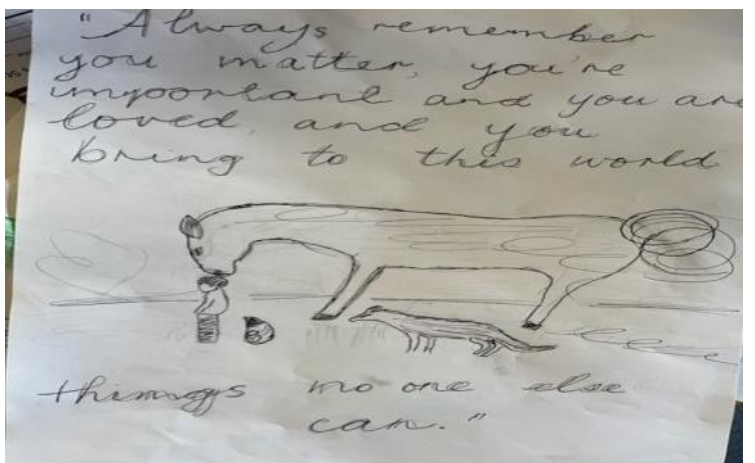 "Always remember
you matter, you're
important and you are
loved, and you
bring to this world
things no one else
can."